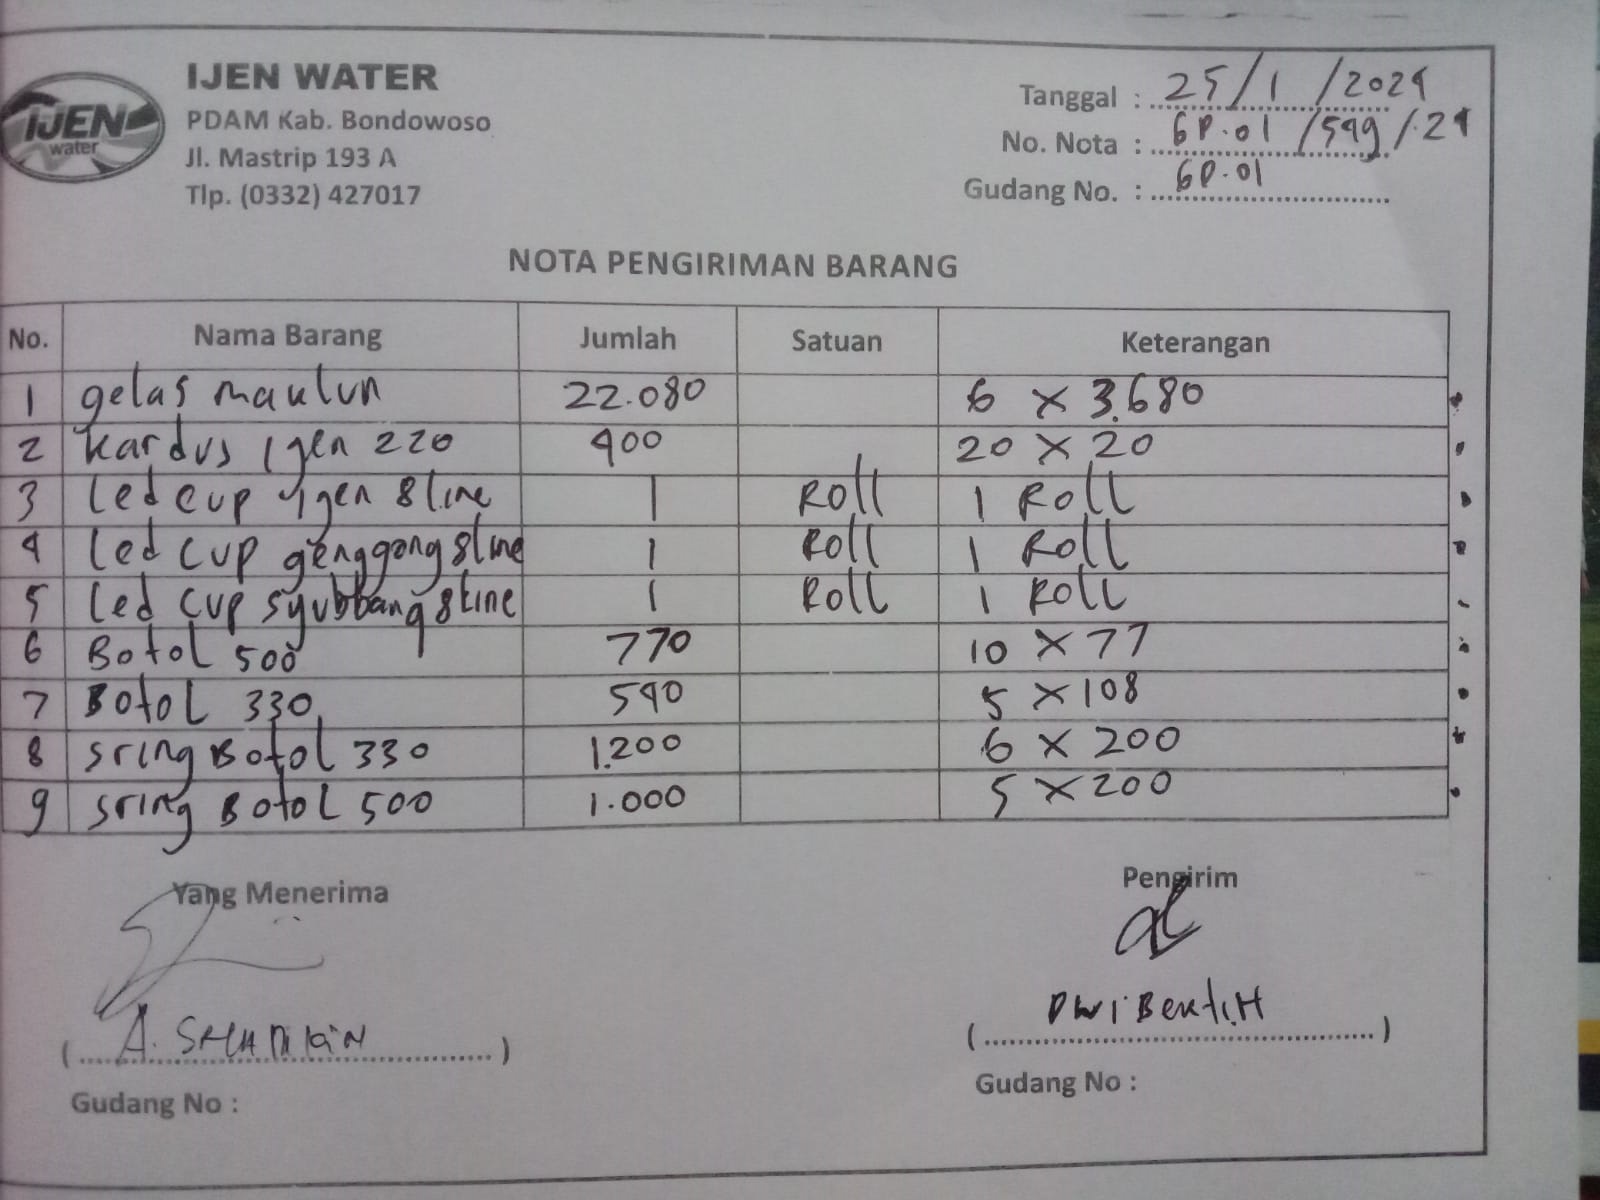 IJEN water
IJEN WATER
PDAM Kab. Bondowoso
Jl. Mastrip 193 A
Tlp. (0332) 427017
Tanggal : 25/1/2024
No. Nota : GP.01/549/.24
Gudang No. : GP.01
NOTA PENGIRIMAN BARANG
No. Nama Barang Jumlah Satuan Keterangan
1 gelas maulun 22.080 6 x 3.680
2 kardus Ijen 220 400 20 x 20
3 Led cup ijen 8 line 1 Roll 1 Roll
4 Led cup genggong 8 line 1 Roll 1 Roll
5 Led cup syubbang 8 line 1 Roll 1 Roll
6 Botol 500 770 10 x 77
7 Botol 330 540 5 x 108
8 sring Botol 330 1.200 6 x 200
9 sring Botol 500 1.000 5 x 200
Yang Menerima
Pengirim
(A. )
(Dwi )
Gudang No :
Gudang No :